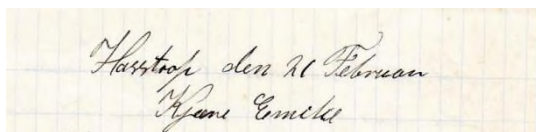 Hasstrop den 21 Februar
Kjære Emilie